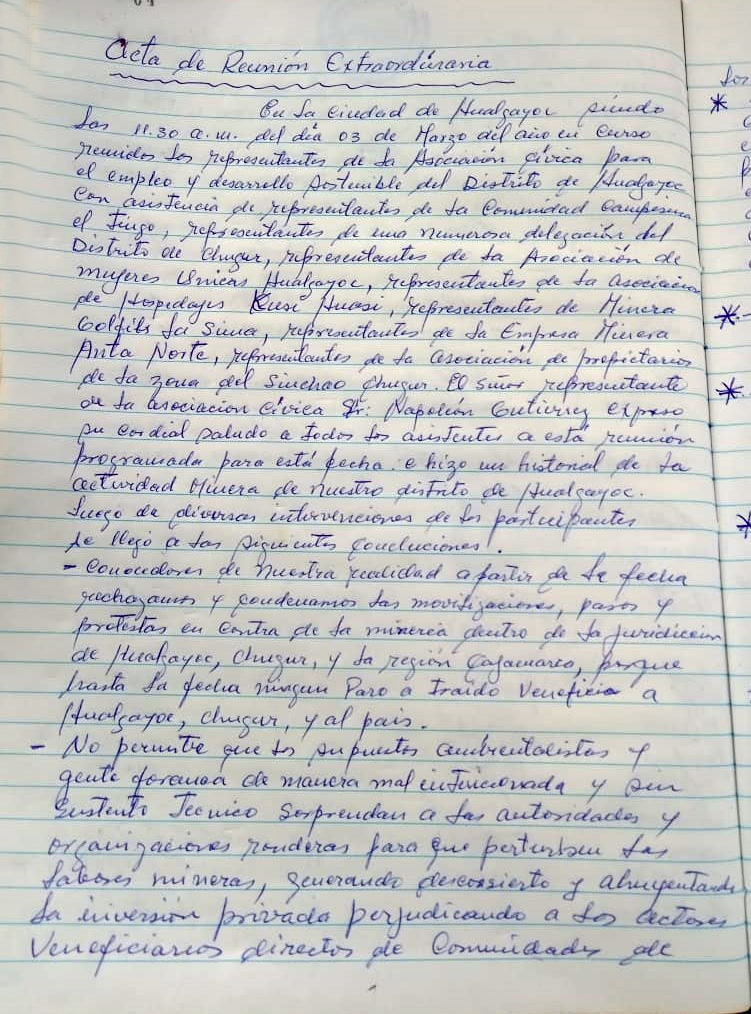 Acta de Reunión Extraordinaria
En la Ciudad de Hualgayoc siendo
las 11.30 a.m. del día 03 de Marzo del año en curso
reunidos los representantes de la Asociación Cívica para
el empleo y desarrollo sostenible del Distrito de Hualgayoc
Con asistencia de representantes de la Comunidad Campesina
el Tingo, representantes de una numerosa delegación del
Distrito de Chugur, representantes de la Asociación de
mujeres Unicas Hualgayoc, representantes de la asociación
de Hospedajes Kusi Huasi, representantes de Minera
Golfils La Sima, representantes de la Empresa Minera
Anta Norte, representantes de la asociación de propietarios
de la zona del Sinchao Chugur. El Señor representante
de la asociacion Cívica Sr: Napoleón Gutierrez expreso
su cordial saludo a todos los asistentes a está reunión
programada para está fecha. e hizo un historial de la
actividad Minera de nuestro distrito de Hualgayoc.
luego de diversas intervenciones de los participantes
se llegó a las siguientes concluciones.
- Conocedores de nuestra realidad a partir de la fecha
rechazamos y condenamos las movilizaciones, paros y
protestas en contra de la minería dentro de la juridicción
de Hualgayoc, Chugur, y la región Cajamarca, porque
hasta la fecha ningun Paro a traído Veneficio a
Hualgayoc, chugur, y al pais.
- No permitir que los supuestos ambientalistas y
gente foranea de manera mal intencionada y sin
Sustento Tecnico Sorprendan a las autoridades y
organizaciones ronderas para que perturben las
labores mineras, generando desconsierto y ahuyentando
la inversión privada perjudicando a los actores
Veneficiarios directos de Comunidades de